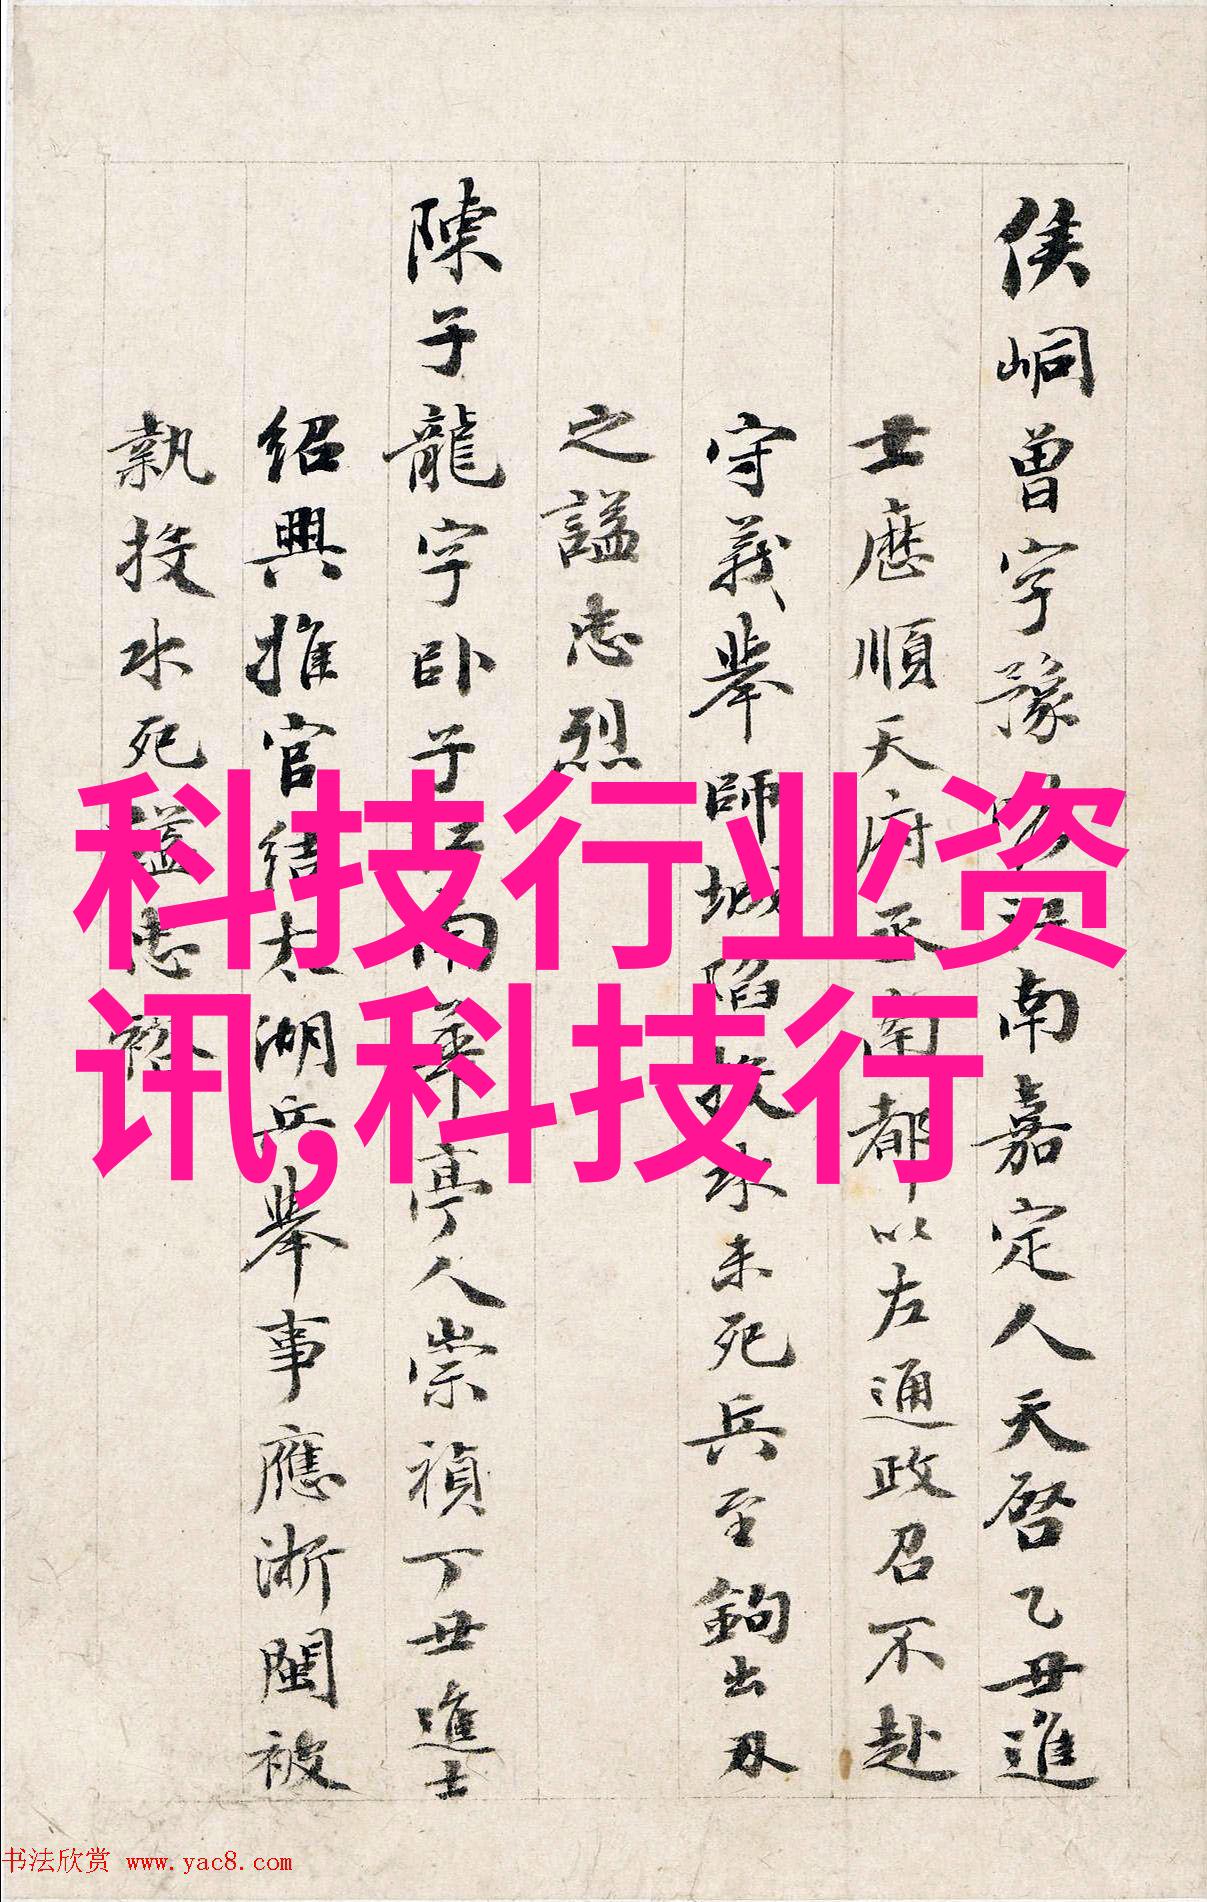 侯峒曾字豫瞻江南嘉定人天啓乙丑進
士歷順天府丞南都以左通政召不赴
守義舉師城陷投水未死兵至鉤出刃
之謚忠烈
陳子龍字卧子江南華亭人崇禎丁丑進士
紹興推官結太湖兵舉事應浙閩被
執投水死謚忠裕
科技行业资
讯,科技行
书法欣赏 www.yac8.com